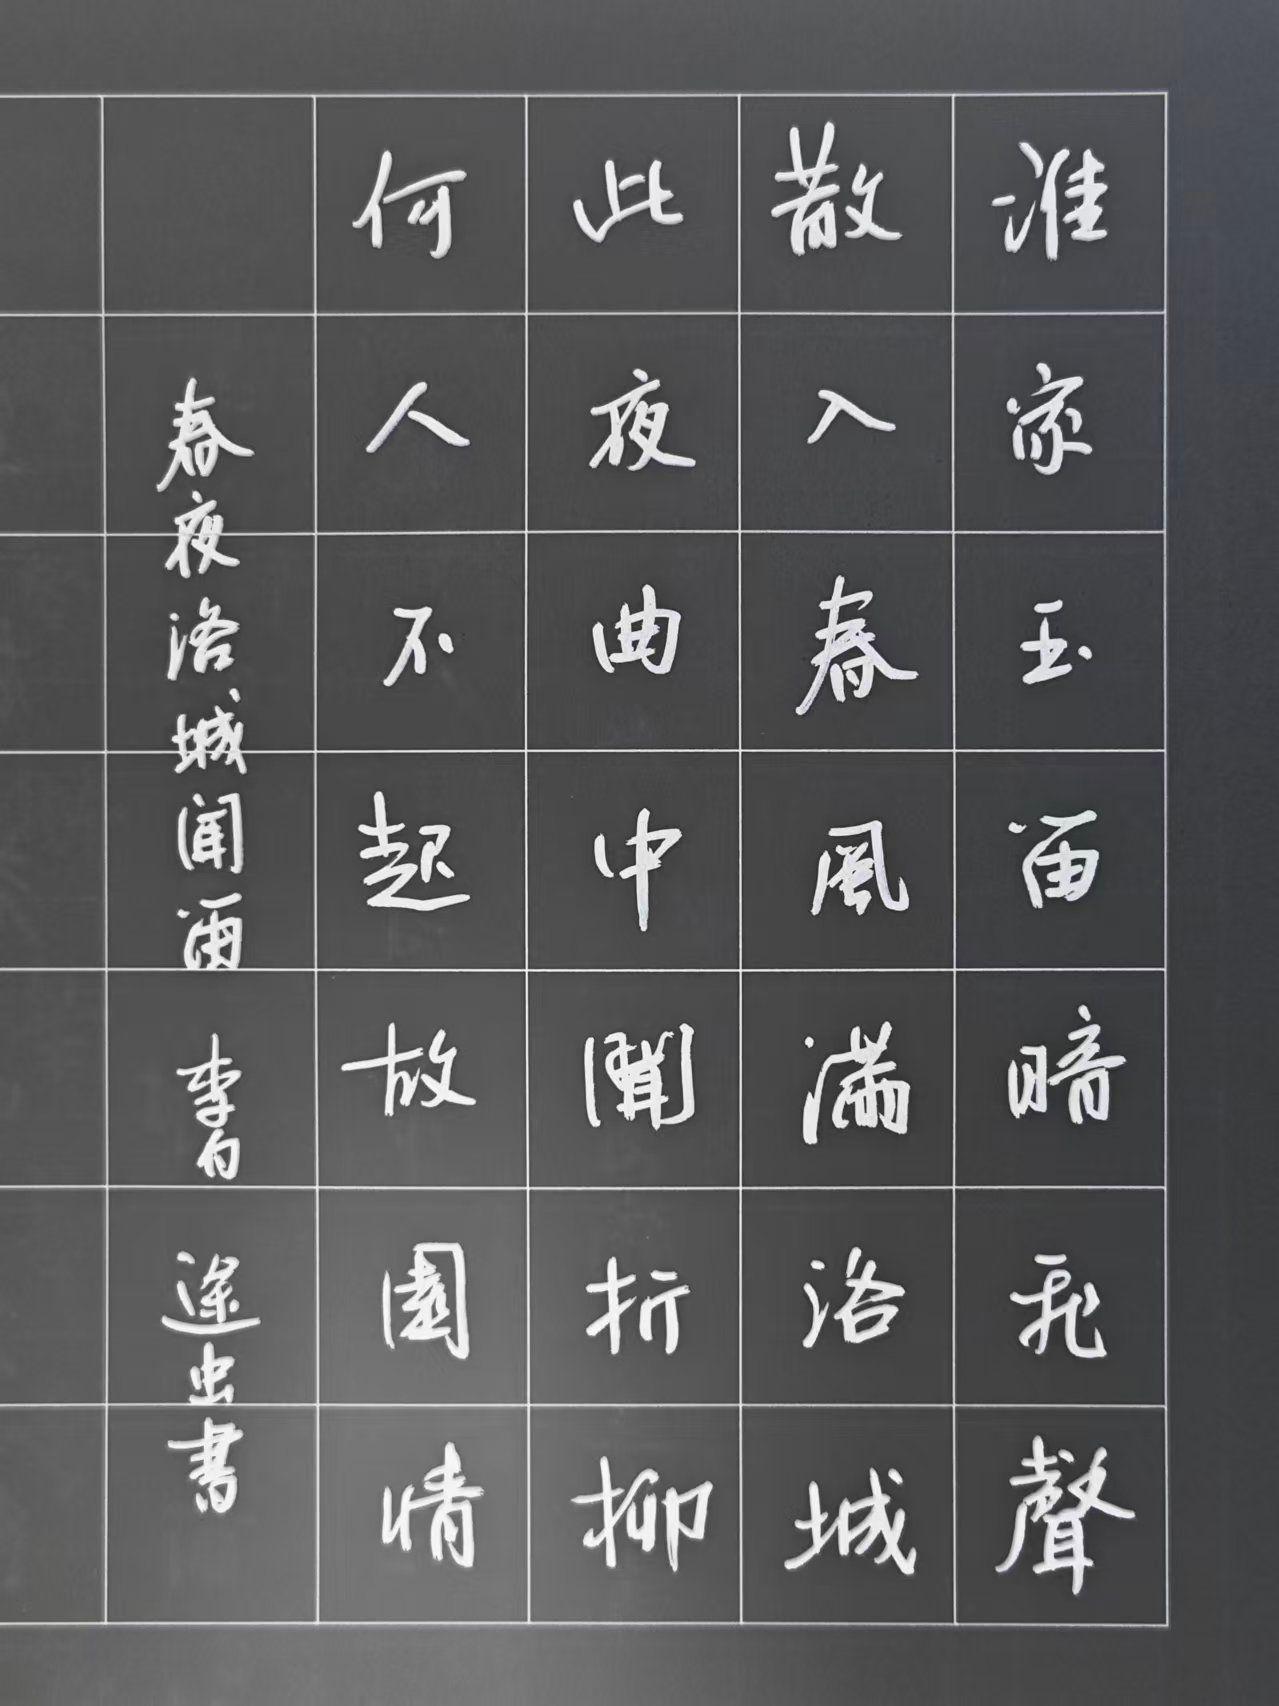 誰家玉笛暗飛聲
散入春風滿洛城
此夜曲中聞折柳
何人不起故園情
春夜洛城聞笛 李白 途虫書